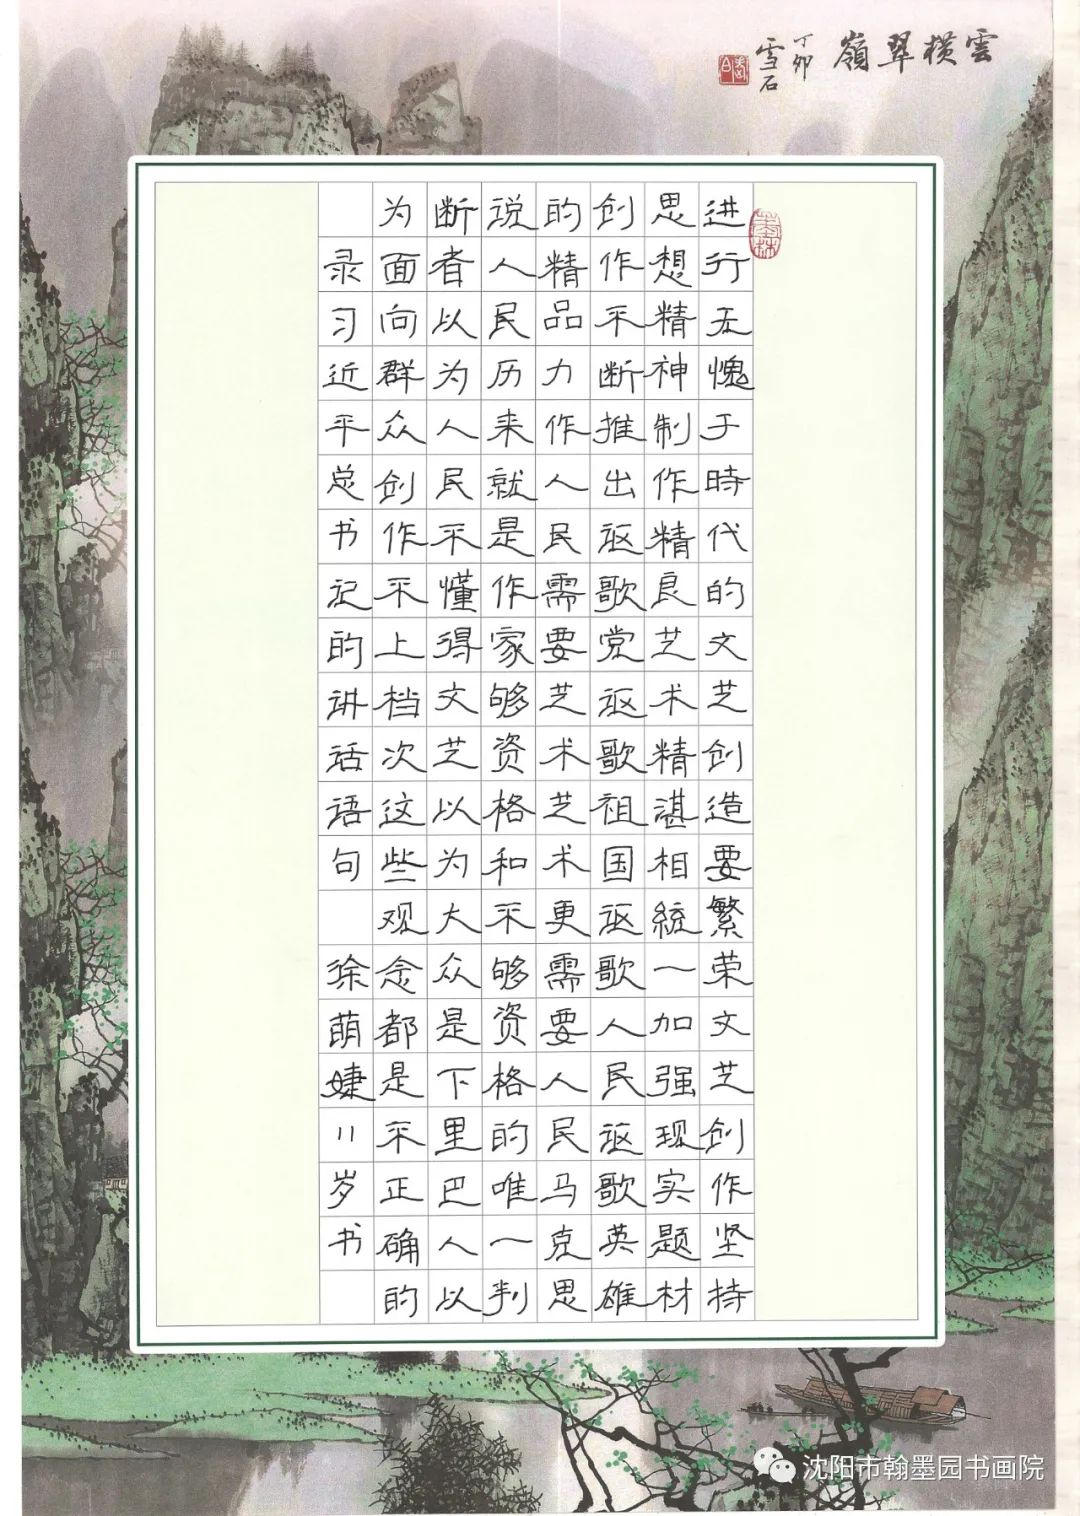 雲横翠嶺
丁卯
雪石
墨林
进行无愧于時代的文艺创造要繁荣文艺创作坚持
思想精神制作精良艺术精湛相統一加强现实题材
创作不断推出讴歌党讴歌祖国讴歌人民讴歌英雄
的精品力作人民需要艺术艺术更需要人民马克思
说人民历来就是作家够资格和不够资格的唯一判
断者以为人民不懂得文艺以为大众是下里巴人以
为面向群众创作不上档次这些观念都是不正确的
录习近平总书记的讲话语句 徐萌婕11岁书
沈阳市翰墨园书画院